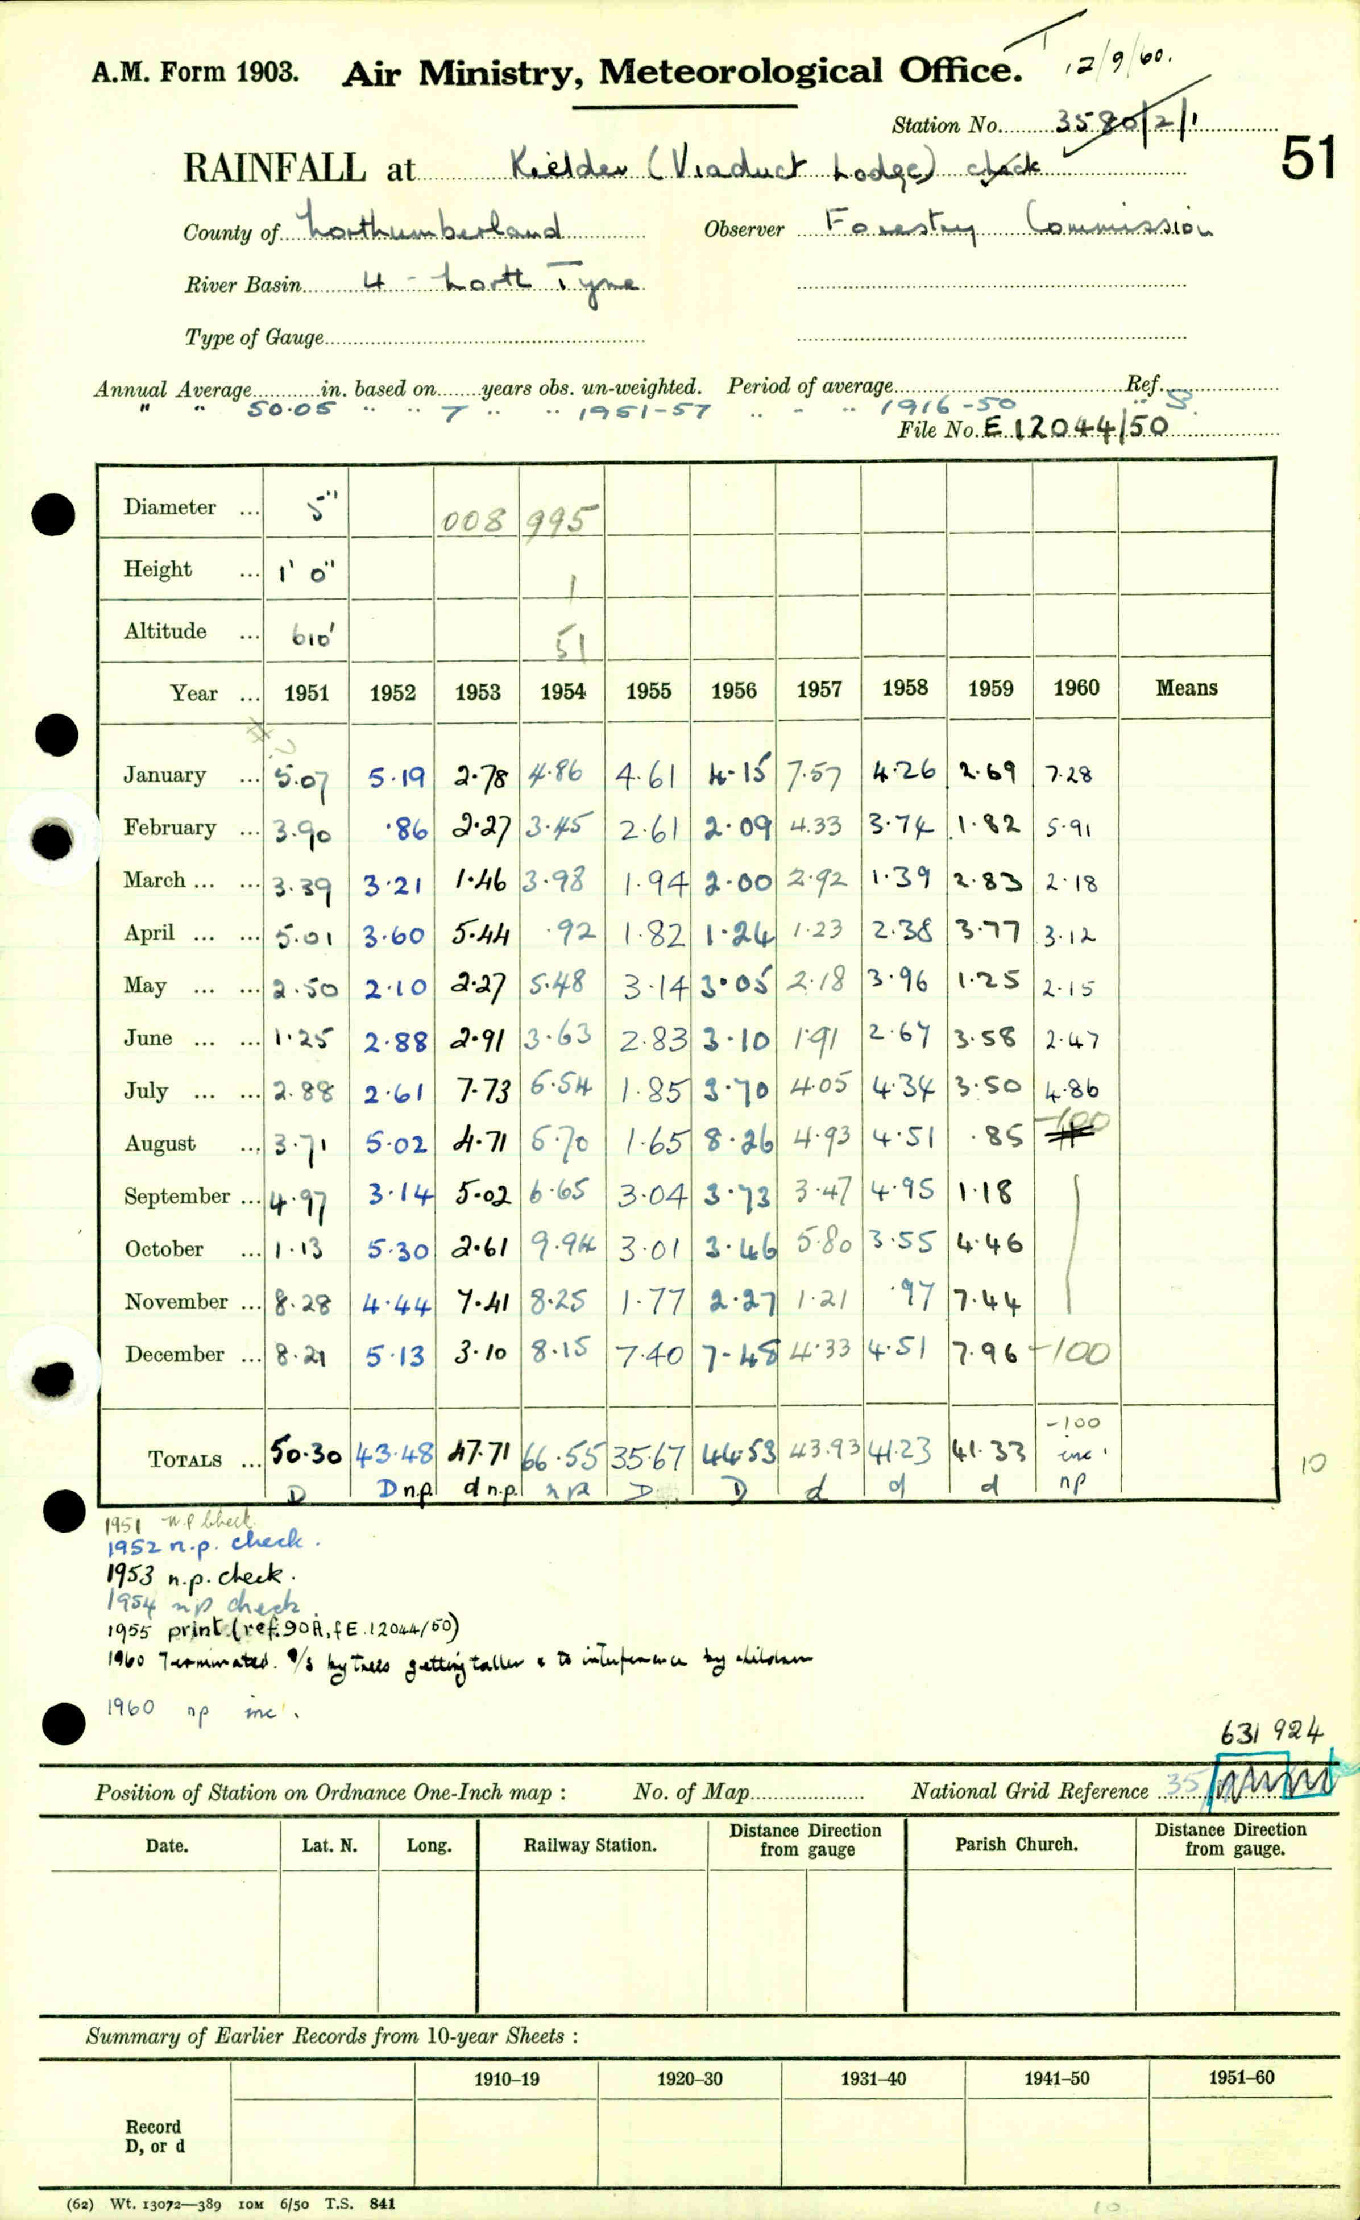 12/9/60.
A.M. Form 1903. Air Ministry, Meteorological Office.
Station No. 3580/2/1
51
RAINFALL at Kielder (Viaduct Lodge) check
County of Northumberland Observer Forestry Commission
River Basin 4 - North Tyne
Type of Gauge
Annual Average in. based on years obs. un-weighted. Period of average Ref.
" " 50.05 " " 7 " " 1951-57 " - " 1916-50 " S.
File No. E 12044/50
Diameter ... 5" 008 995
Height ... 1' 0" 1
Altitude ... 610' 51
Year ... 1951 1952 1953 1954 1955 1956 1957 1958 1959 1960 Means
January ... 5.07 5.19 2.78 4.86 4.61 4.15 7.57 4.26 2.69 7.28
February ... 3.90 .86 2.27 3.45 2.61 2.09 4.33 3.74 1.82 5.91
March ... ... 3.39 3.21 1.46 3.98 1.94 2.00 2.92 1.39 2.83 2.18
April ... ... 5.01 3.60 5.44 .92 1.82 1.24 1.23 2.38 3.77 3.12
May ... ... 2.50 2.10 2.27 5.48 3.14 3.05 2.18 3.96 1.25 2.15
June ... ... 1.25 2.88 2.91 3.63 2.83 3.10 1.91 2.67 3.58 2.47
July ... ... 2.88 2.61 7.73 6.54 1.85 3.70 4.05 4.34 3.50 4.86
August ... 3.71 5.02 4.71 5.70 1.65 8.26 4.93 4.51 .85 -100
September ... 4.97 3.14 5.02 6.65 3.04 3.73 3.47 4.95 1.18
October ... 1.13 5.30 2.61 9.94 3.01 3.46 5.80 3.55 4.46
November ... 8.28 4.44 7.41 8.25 1.77 2.27 1.21 .97 7.44
December ... 8.21 5.13 3.10 8.15 7.40 7.48 4.33 4.51 7.96 -100
TOTALS ... 50.30 43.48 47.71 66.55 35.67 44.53 43.93 41.23 41.33 -100 inc' np
D D n.p. d n.p. n p D D d d d
10
1951 n p check
1952 n.p. check.
1953 n.p. check.
1954 n p check
1955 print (ref. 90A, f E.12044/50)
1960 Terminated. O/S by trees getting taller & to interference by children
1960 np inc'.
631 924
Position of Station on Ordnance One-Inch map : No. of Map National Grid Reference 35/
Date. Lat. N. Long. Railway Station. Distance Direction from gauge Parish Church. Distance Direction from gauge.
Summary of Earlier Records from 10-year Sheets :
1910–19 1920–30 1931–40 1941–50 1951–60
Record
D, or d
(62) Wt. 13072—389 10M 6/50 T.S. 841
10